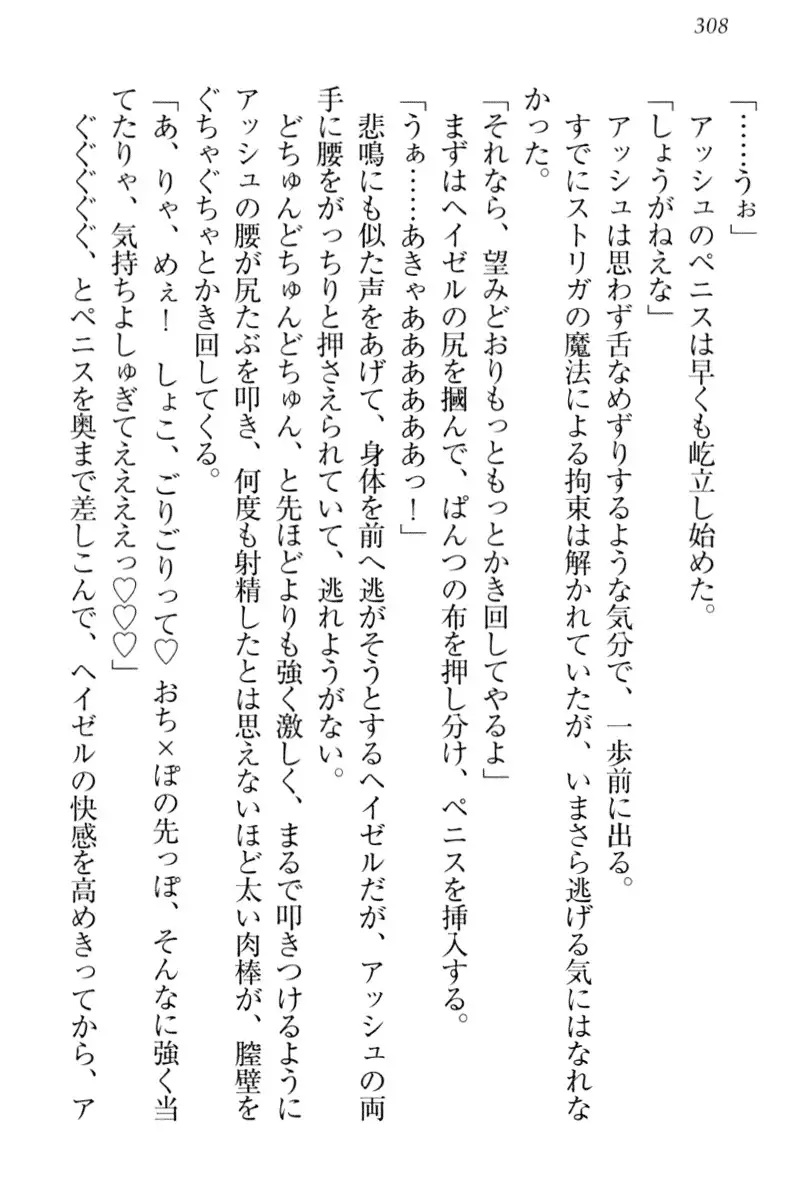 308
「……うぉ」
アッシュのペニスは早くも屹立し始めた。
「しょうがねえな」
アッシュは思わず舌なめずりするような気分で、一歩前に出る。
すでにストリガの魔法による拘束は解かれていたが、いまさら逃げる気にはなれな
かった。
「それなら、望みどおりもっともっとかき回してやるよ」
まずはヘイゼルの尻を摑んで、ぱんつの布を押し分け、ペニスを挿入する。
「うぁ……あきゃああああああっ！」
悲鳴にも似た声をあげて、身体を前へ逃がそうとするヘイゼルだが、アッシュの両
手に腰をがっちりと押さえられていて、逃れようがない。
どちゅんどちゅんどちゅん、と先ほどよりも強く激しく、まるで叩きつけるように
アッシュの腰が尻たぶを叩き、何度も射精したとは思えないほど太い肉棒が、膣壁を
ぐちゃぐちゃとかき回してくる。
「あ、りゃ、めぇ！　しょこ、ごりごりって♡ おち×ぽの先っぽ、そんなに強く当
てたりゃ、気持ちよしゅぎてええええっ♡♡♡」
ぐぐぐぐぐ、とペニスを奥まで差しこんで、ヘイゼルの快感を高めきってから、ア